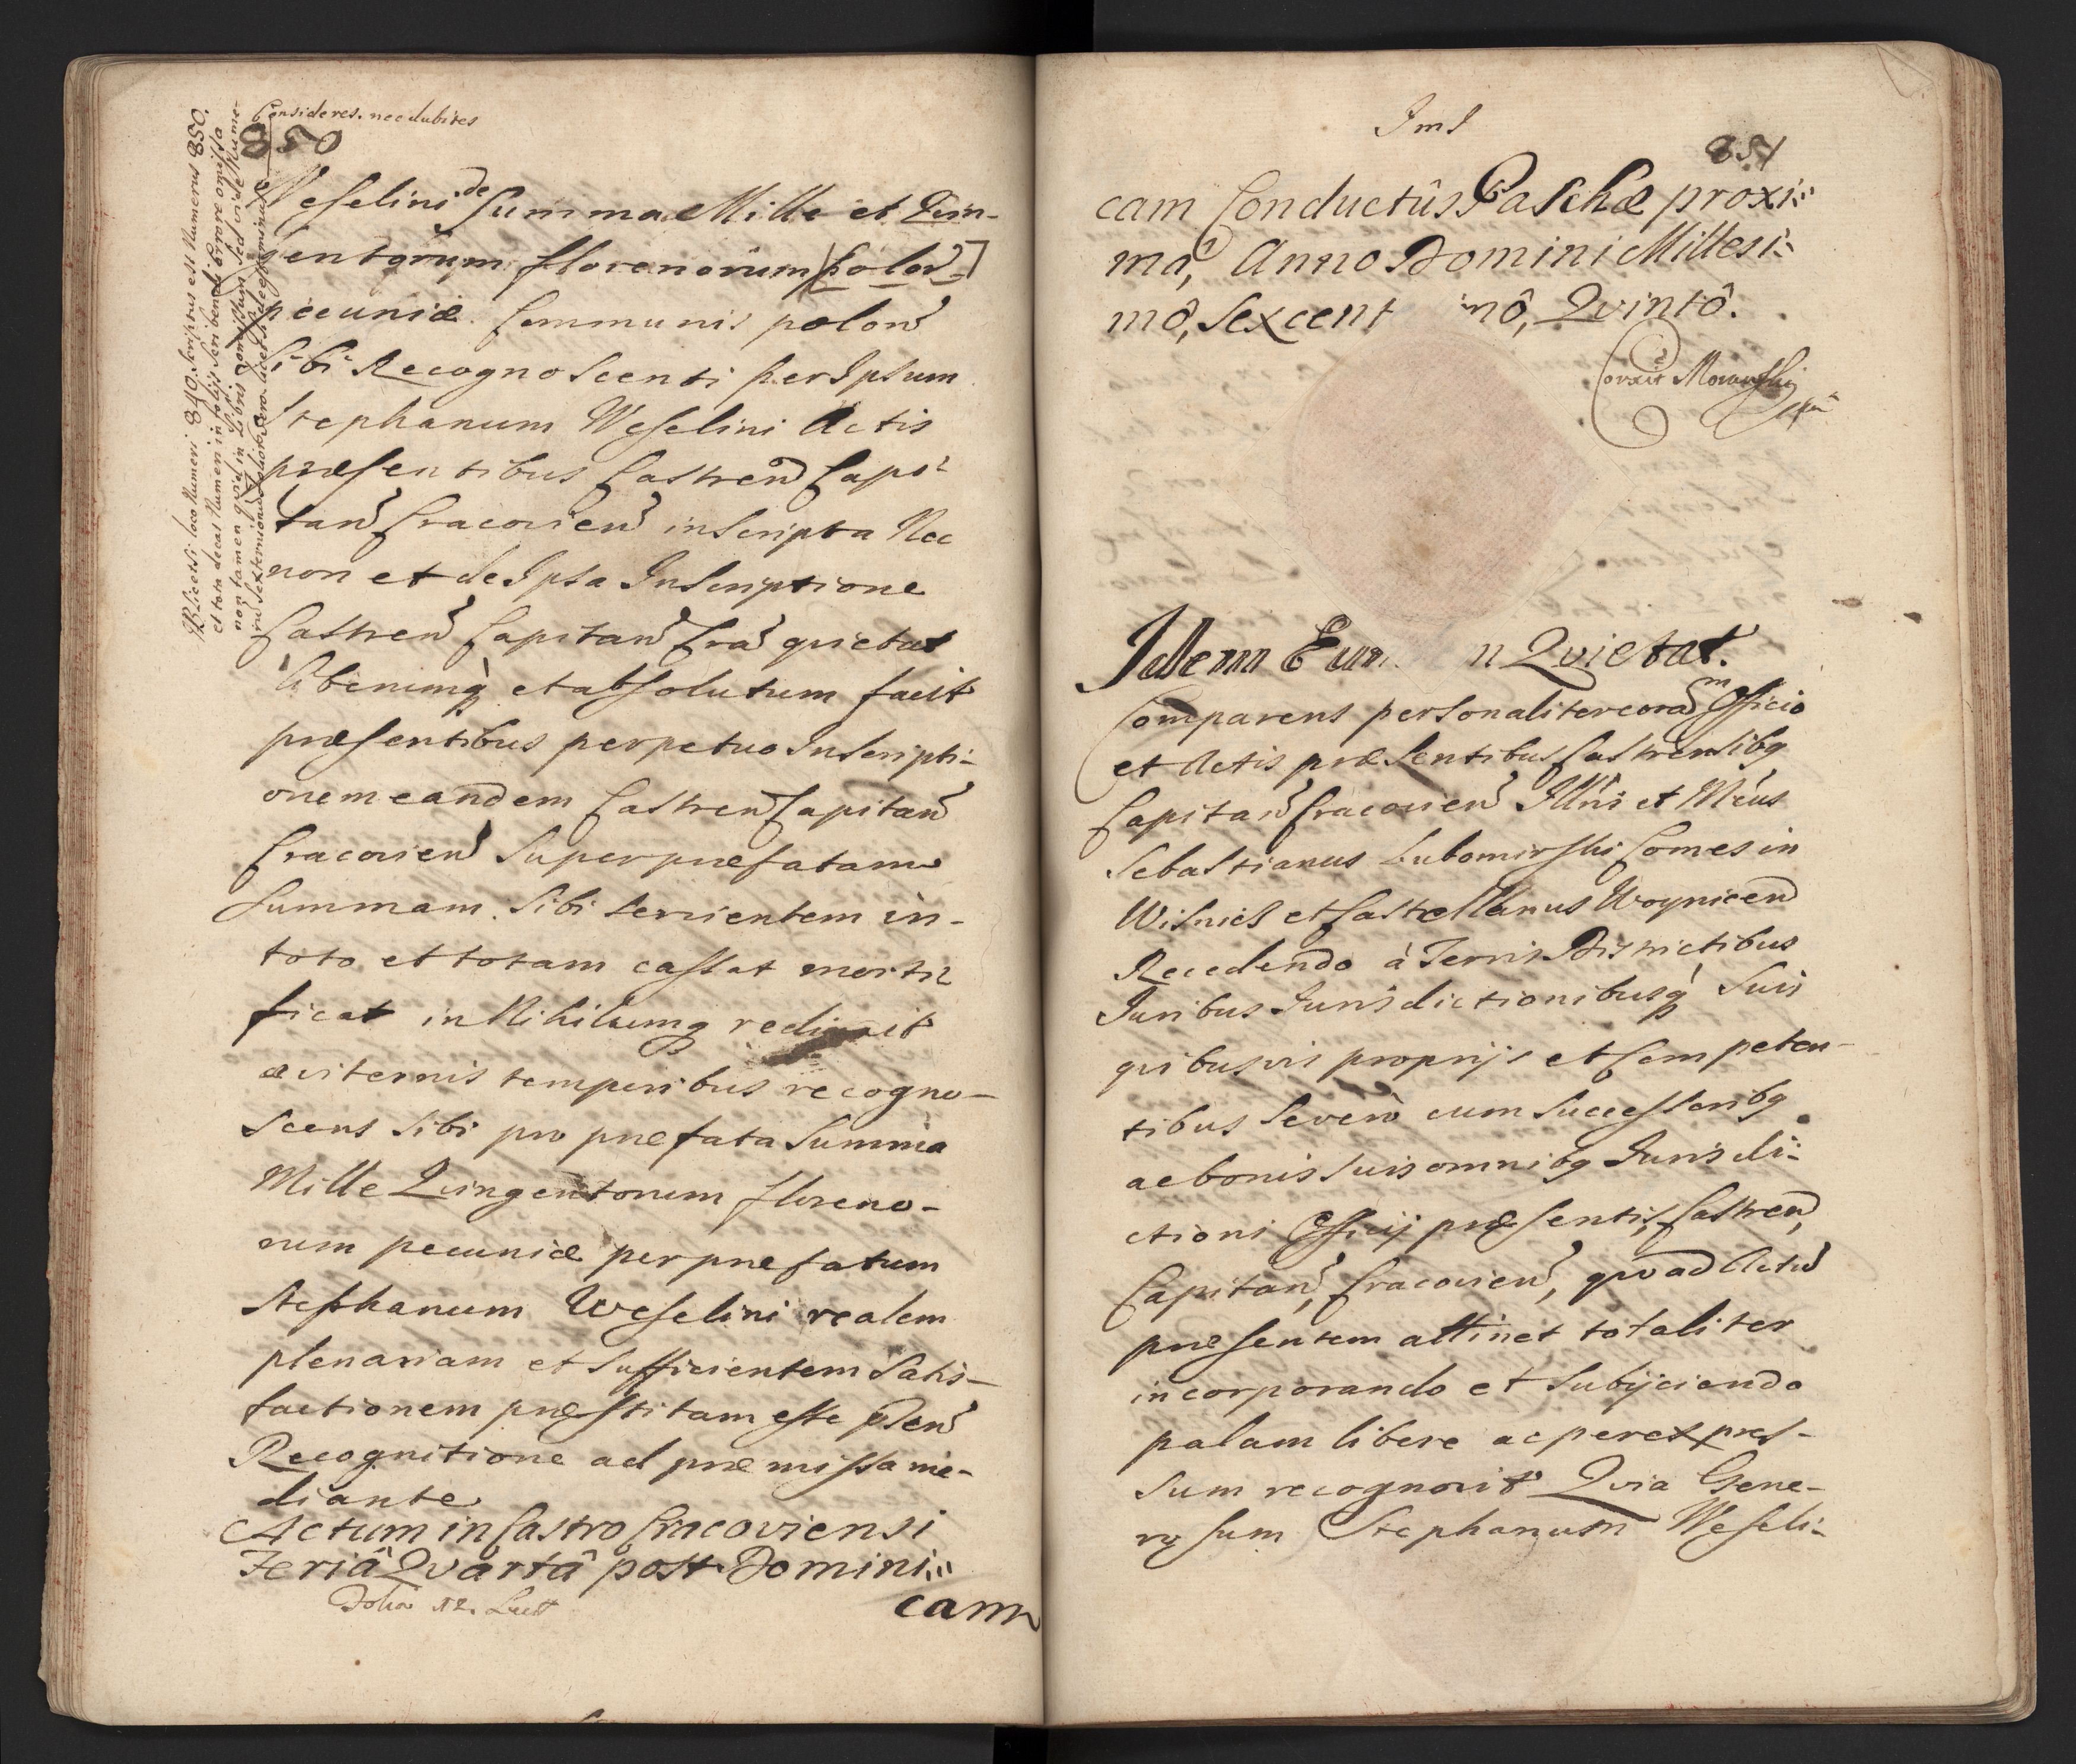 Consideres. nec dubites
850
NB licet si loco Numeri 840. scriptus est Numerus 850.
et tota decas Numeri in folijs scribendi errore omissa
non tamen quid in Libris omissum sed
Weselini de Summa Mille et Quin-
gentorum florenorum [polon̄]
pecuniæ communis polon̄
Sibi Recognoscenti per Ipsum
Stephanum Weselini Actis
præsentibus Castren̄ Capi-
tan̄ Cracovien̄ inscripta Nec
non et de Ipsa Inscriptione
Castren̄ Capitan̄ Cra̅ quietat
liberumq̃ et absolutum facit
præsentibus perpetuo Inscripti-
onem eandem Castren̄ Capitan̄
Cracovien̄ Super præfatam
Summam Sibi servientem in-
toto et totam cassat morti-
ficat in Nihilumq̃
æviternis temporibus recogno-
scens Sibi pro præfata Summa
Mille Quingentorum floreno-
rum pecuniæ per præfatum
Stephanum Weselini realem
plenariam et Sufficientem Satis-
factionem præstitam esse
Recognitione ad præmissa me-
diante
Actum in Castro Cracoviensi
Feriâ Quartâ post Domini-
cam
851
cam Conductûs Paschæ proxi-
mâ, Anno Domini Millesi-
mô, Sexcent mô, Quintô.
Idem Eun n Quietat.
Comparens personaliter coram Officio
et Actis præsentibus Castrensibq
Capitan̄ Cracovien̄ Illris et Mcus
Sebastianus Lubomirski Comes in
Wisnicz et Castellanus Woynicen̄
Recedendo à Terris Districtibus
Iuribus Iurisdictionibusq̃ Suis
quibusvis proprijs et Competen-
tibus Severo cum Successoribq
ac bonis suis omnibq Iurisdi-
ctioni Officij præsentis, Castren̄,
Capitan̄, Cracovien̄, quo ad Actū
præsentem attinet totaliter
incorporando et Subijciendo
palam libere ac per expres-
sum recognovit Quia Gene-
rosum Stephanum Weseli-